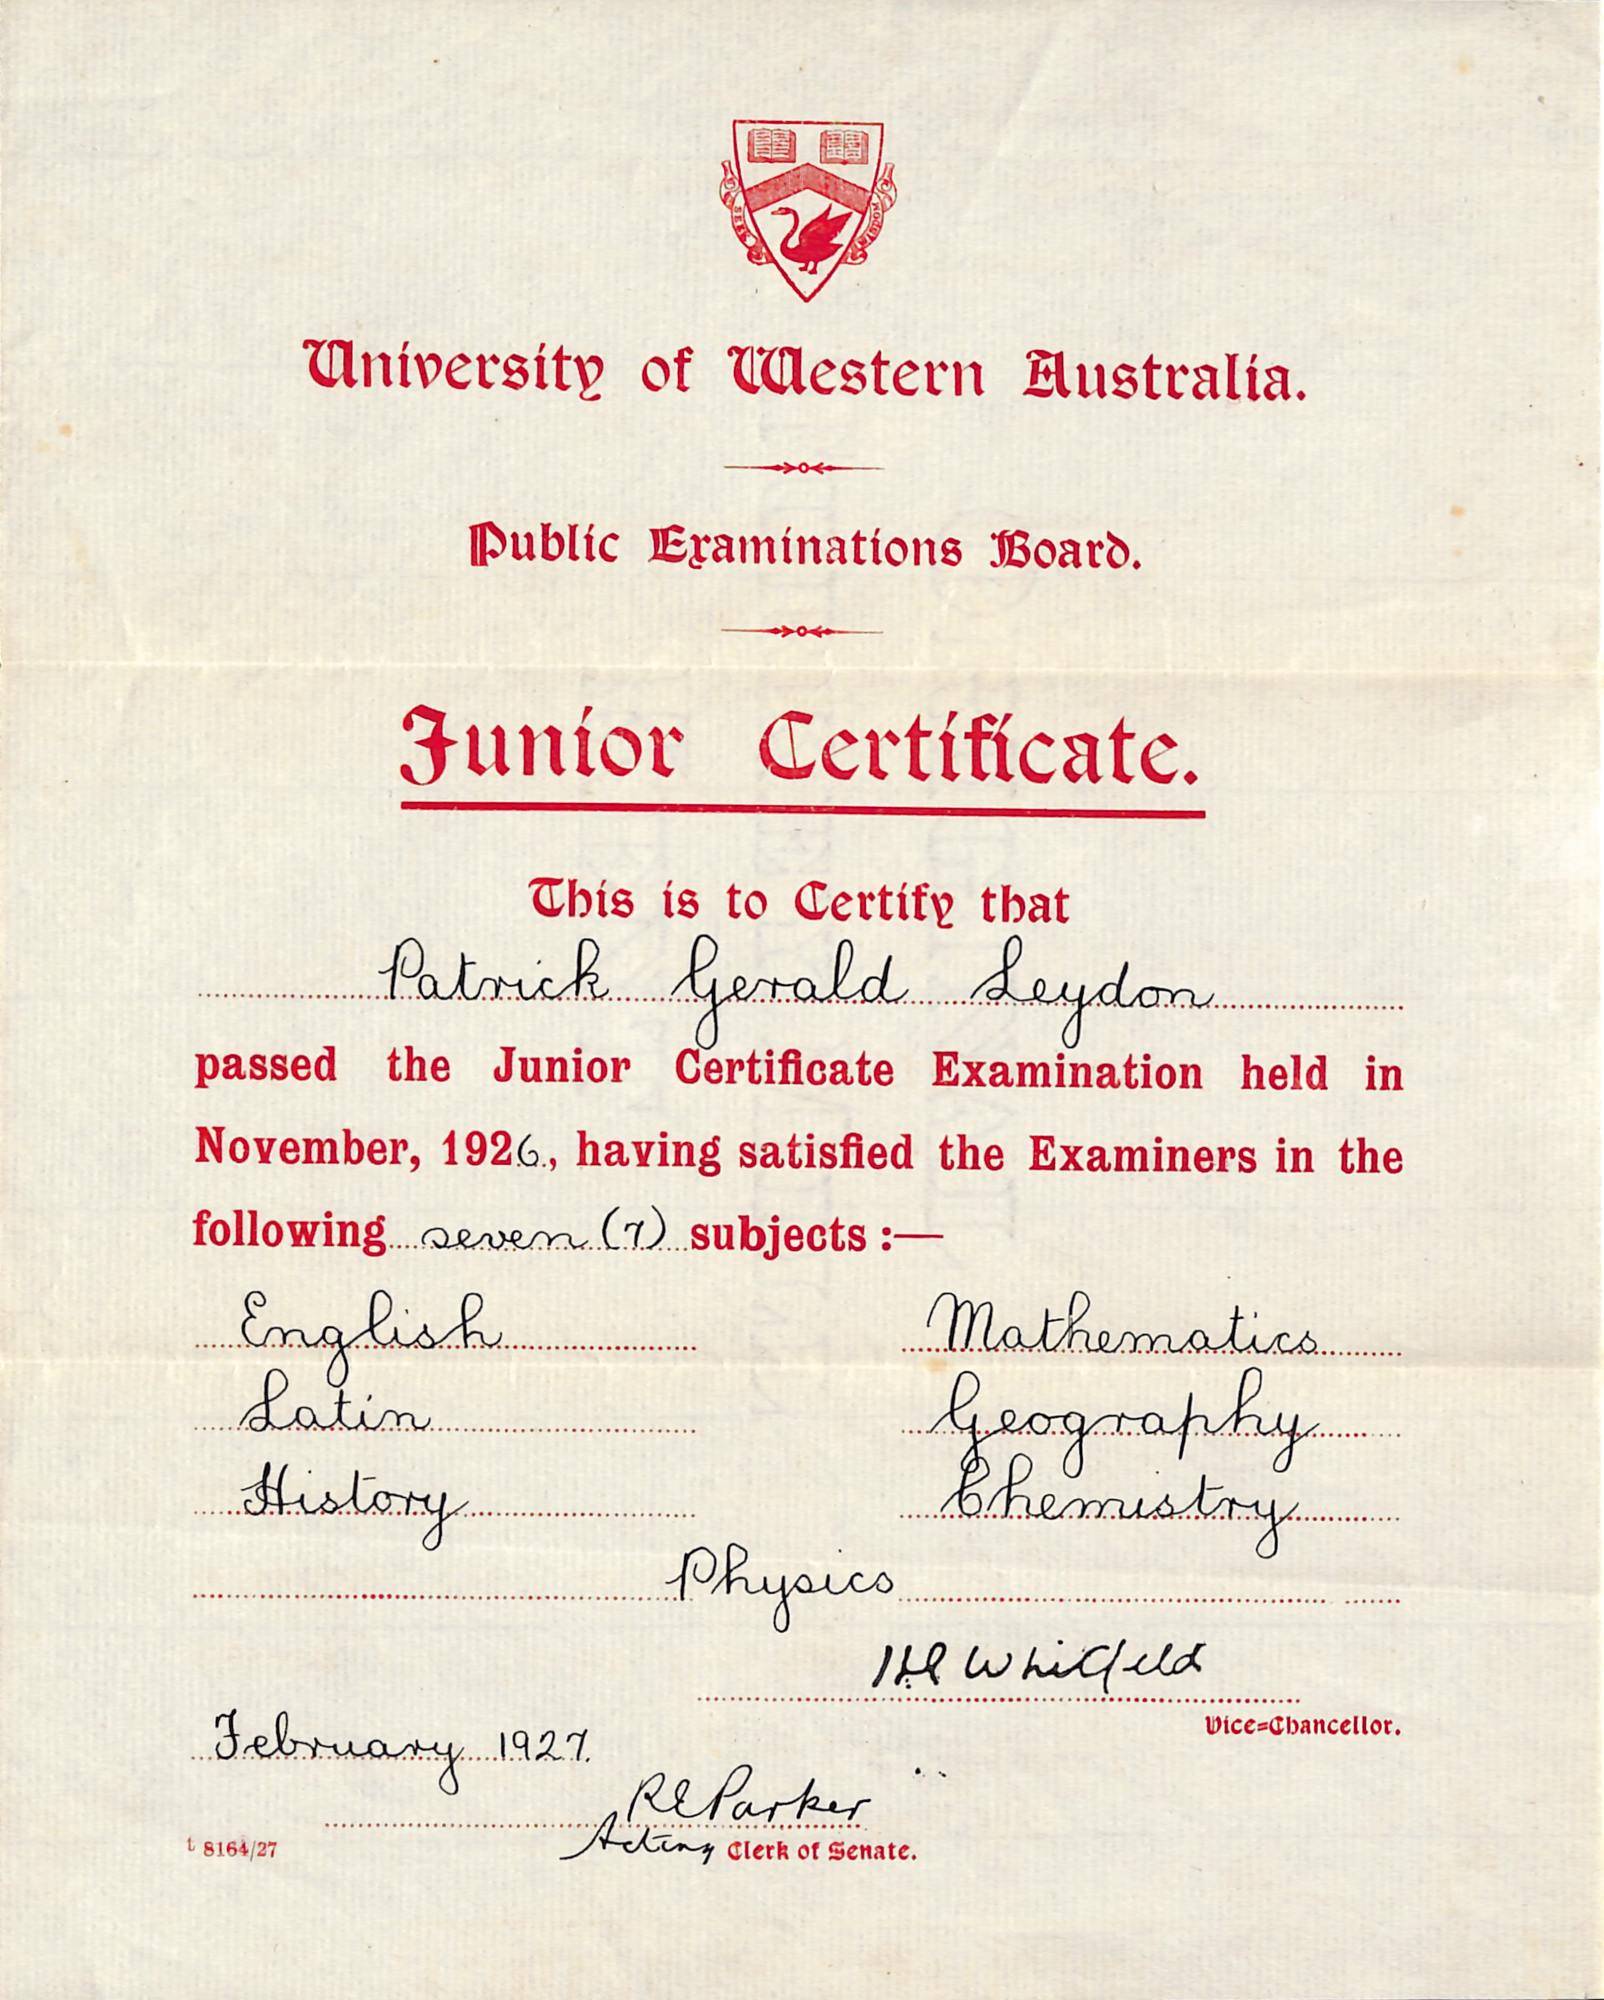 SEEK WISDOM
University of Western Australia.
Public Examinations Board.
Junior Certificate.
This is to Certify that
Patrick Gerald Leydon
passed the Junior Certificate Examination held in
November, 1926., having satisfied the Examiners in the
following seven (7) subjects :—
English Mathematics
Latin Geography
History Chemistry
Physics
Whitfeld
Vice=Chancellor.
February 1927.
R E Parker
Acting Clerk of Senate.
t 8164/27